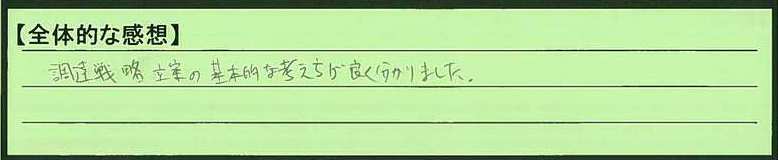 【全体的な感想】
調達戦略立案の基本的な考え方が良く分かりました。